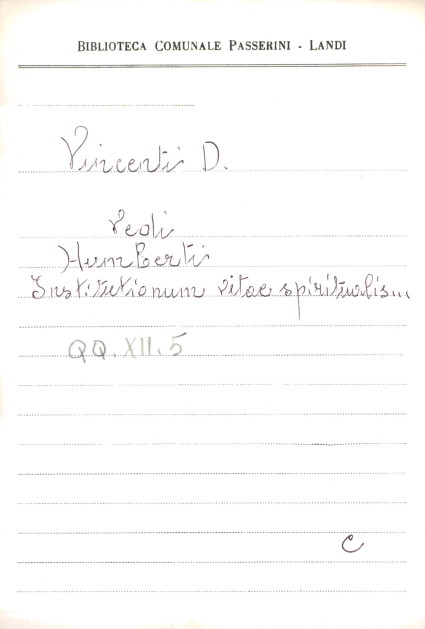 BIBLIOTECA COMUNALE PASSERINI - LANDI
Vincenti D.
Vedi
Humberti
Institutionum vitae spiritualis...
QQ. XII. 5
C